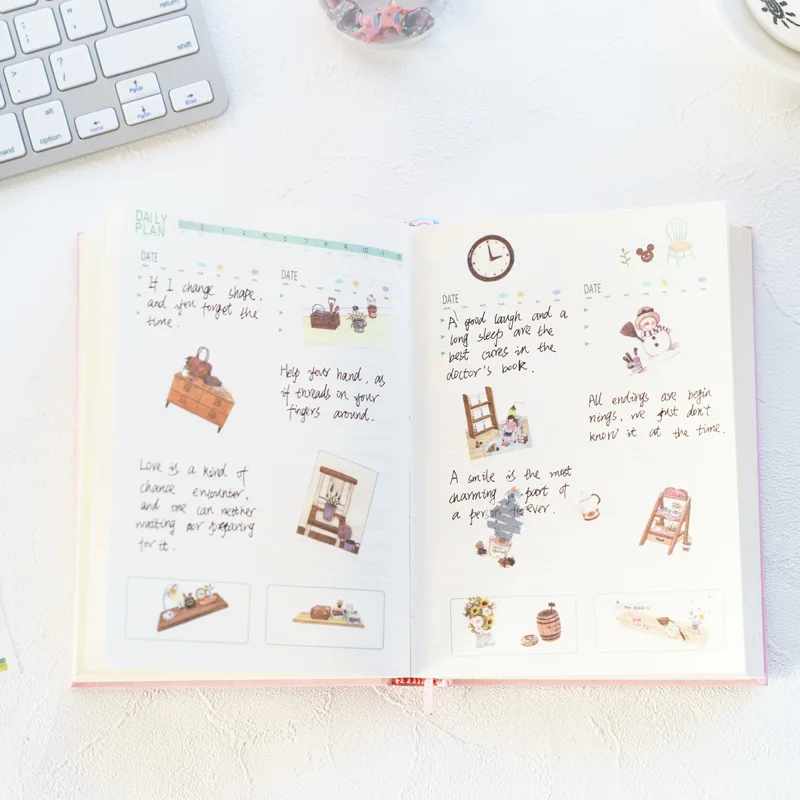 return
shift
alt
option
Home
PgUp
PgDn
End
DAILY
PLAN
DATE
If I change shape.
and you forget the
time.
DATE
Help your hand, as
if threads on your
fingers around.
Love is a kind of
chance encounter,
and one can neither
waiting for preparing
for it.
DATE
A good laugh and a
long sleep are the
best cures in the
doctor's book.
DATE
All endings are begin
nings, we just don't
know it at the time.
A smile is the most
charming part of
a person forever.